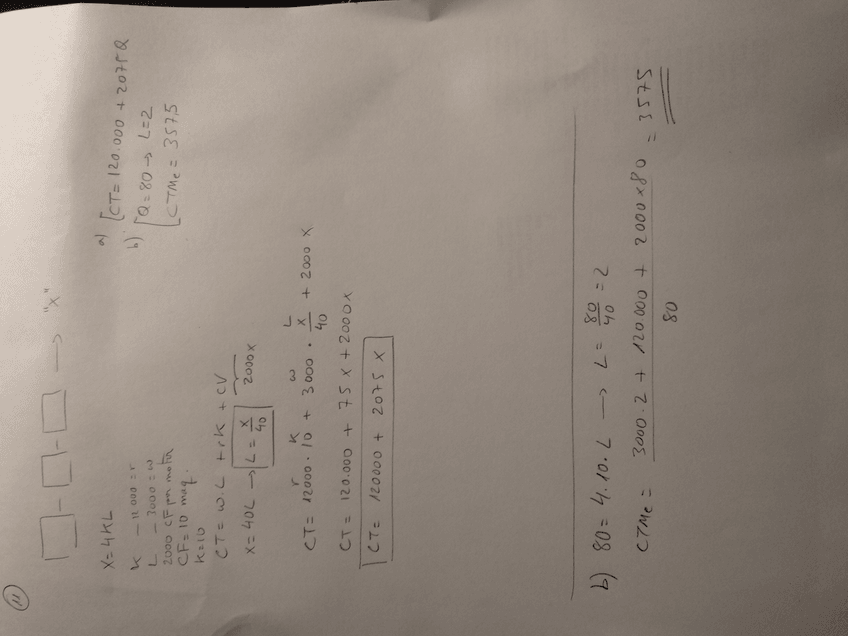 11
→ "x"
X=4KL
K - 12000=r
L - 3000=w
2000 CF por motor
CF=10 maq.
K=10
CT= w.L + rK + CV
2000x
X=40L → L= x/40
r K w L
CT= 12000.10 + 3000 . x/40 + 2000 x
CT= 120.000 + 75x + 2000x
CT= 120000 + 2075 x
a) CT= 120.000 + 2075Q
b) Q=80 → L=2
CTMe = 3575
b) 80= 4.10.L → L= 80/40 =2
CTMe= 3000.2 + 120.000 + 2000x80 / 80 = 3575